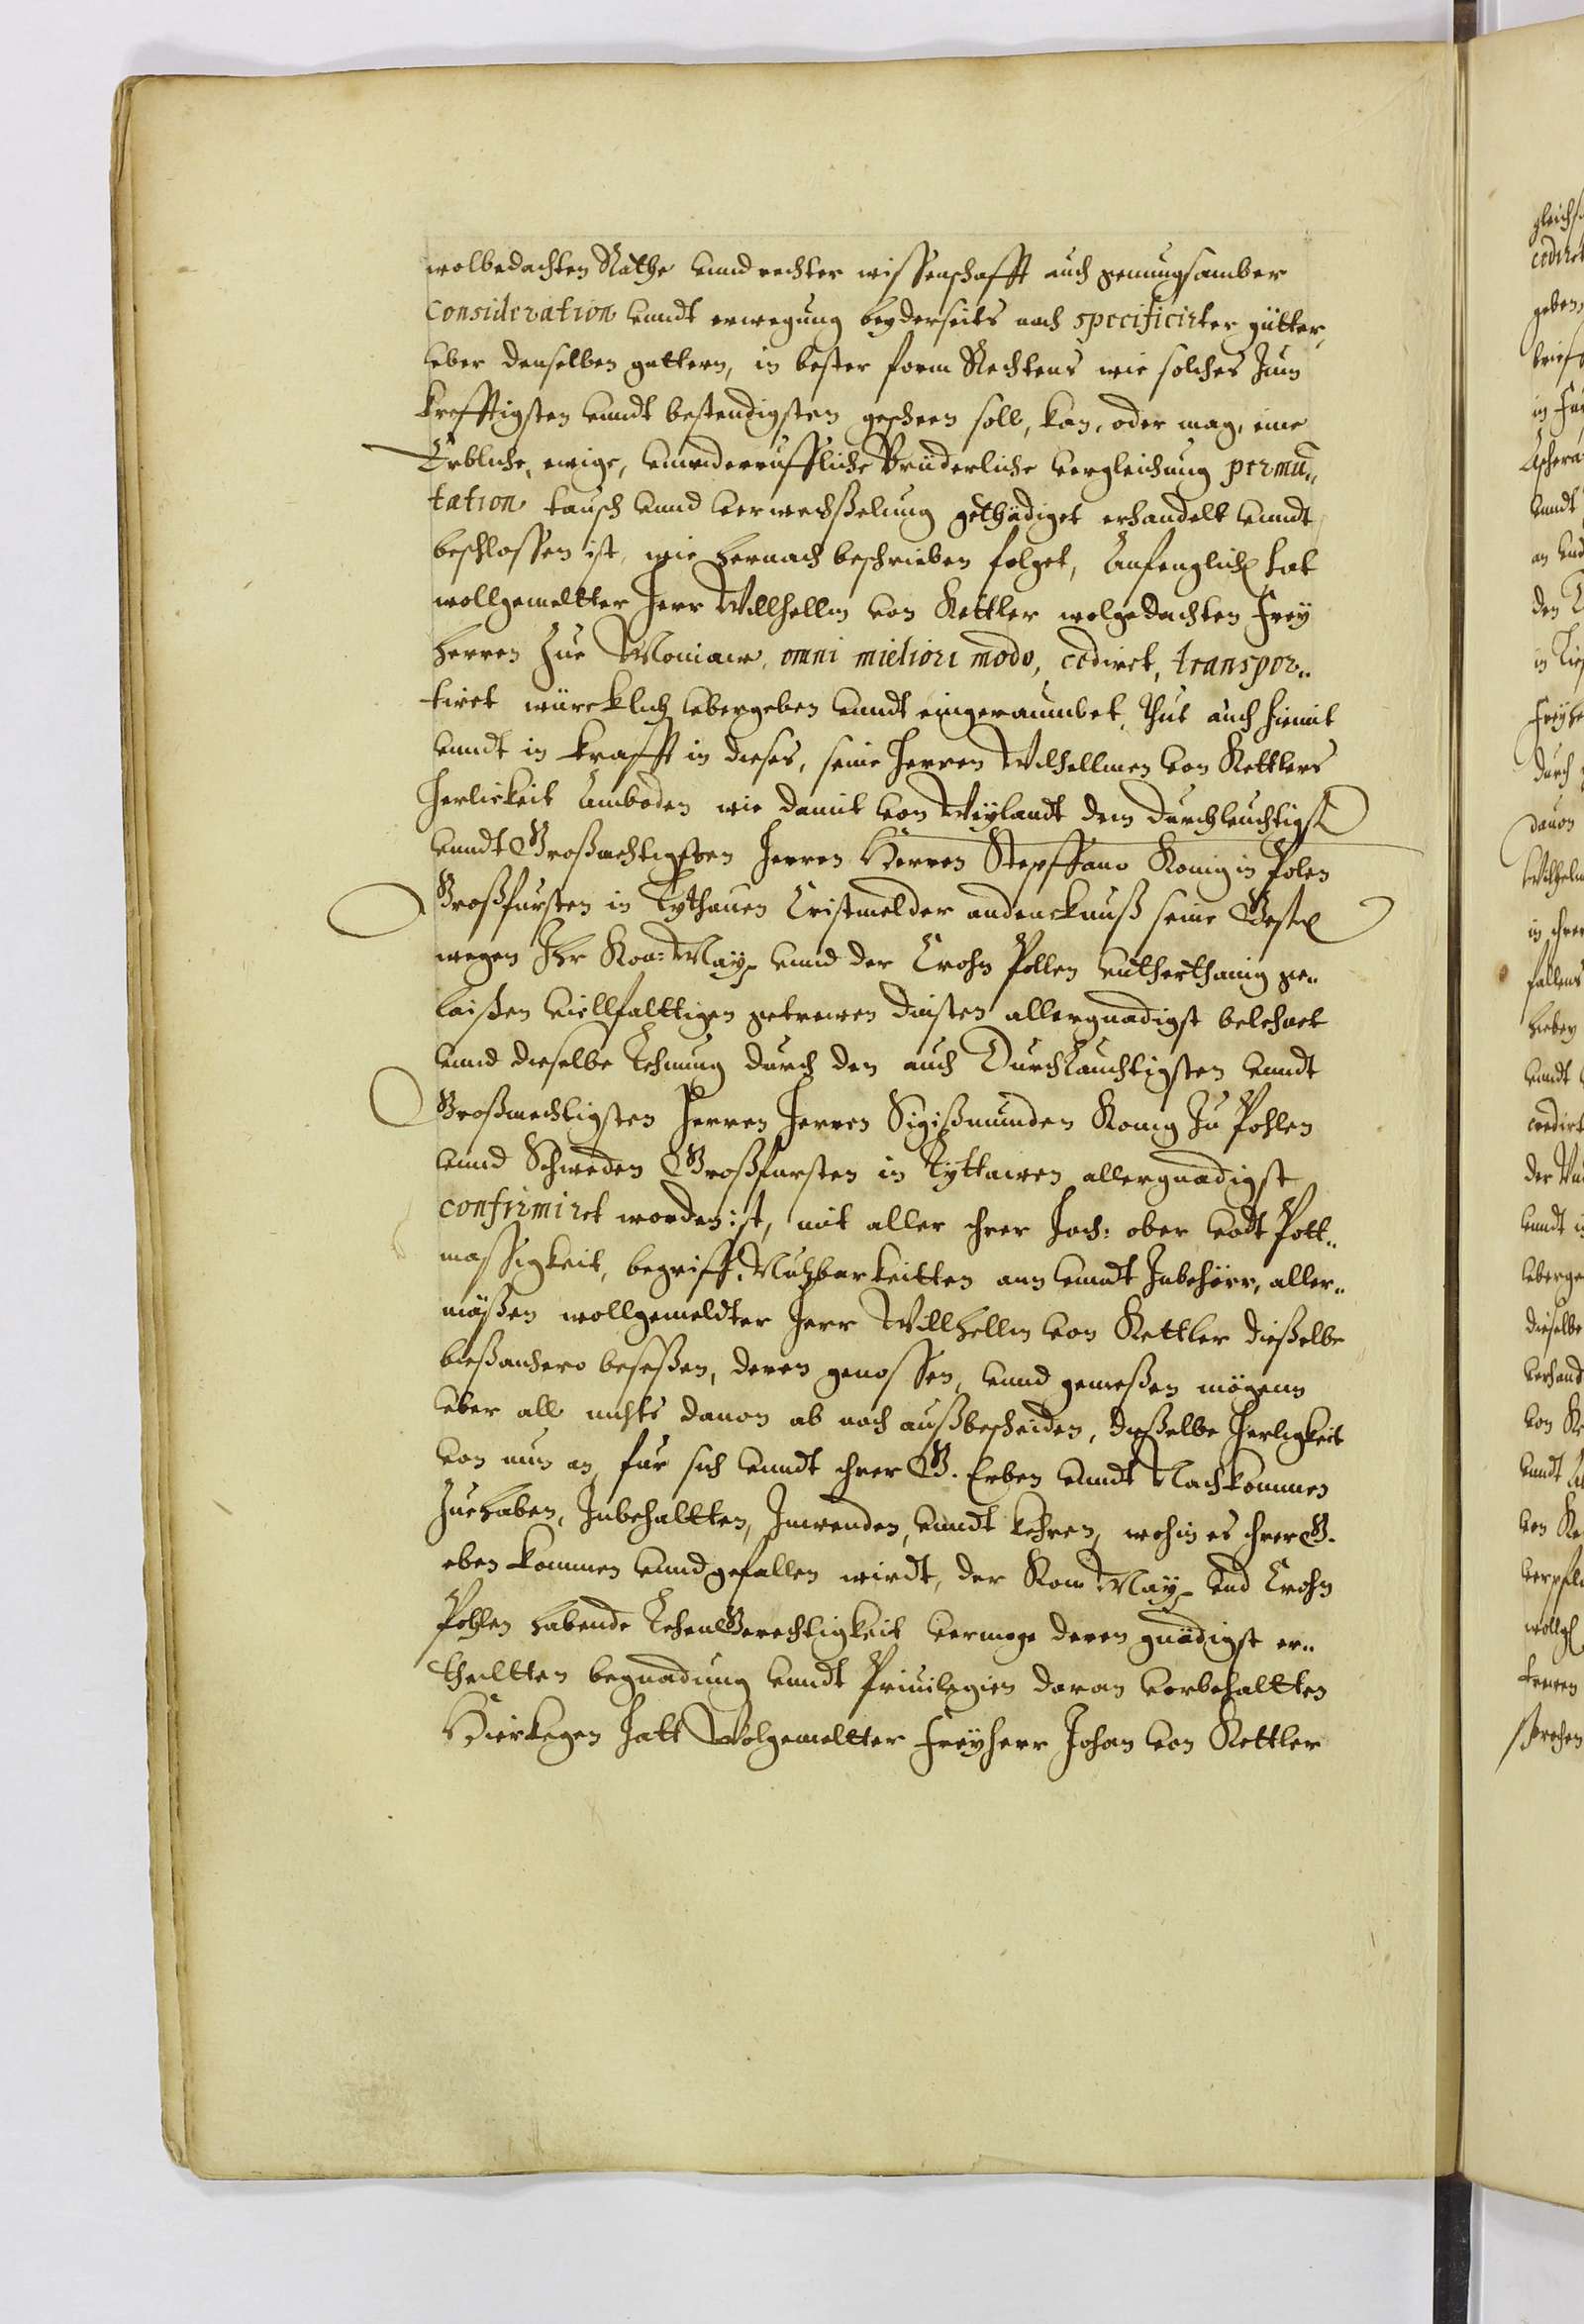 wolbedachten Rathe vnnd rechter wissenschafft auch genungsamber
Consideration vnndt erwegung beyderseits nach specificirter gütter,
vber denselben guttern, in bester form Rechtens wie solches Zum
krefftigsten vnndt bestendigsten geschen soll, kan, oder mag, eine
Erbliche, ewige, vnwiderruffliche Brüderliche vergleichung permu„
tation tausch vnnd verwechßelung gethädiget erhandelt vnndt
beschlossen ist, wie hernach beschrieben folget, Anfenglich hat
wollgemeltter Herr Willhellm von Kettler wolgedachten Frey
herren Zue Moniaw, omni mieliori modo, cediret, transpor„
tiret würcklich vbergeben vnndt eingeraumbet, Thut auch hiemit
vnndt in krafft in dieses, seine Herren Wilhellmen von Kettlers
Herlickeit Amboden wie damit von Weylandt dem durchleuchtigst
vnndt Großmachtigsten Herren Herren Steffano Konig in Polen
Großfursten in Lythauen Cristmelder andencknuß seine
wegen Ihr Kon: May: vnnd der Crohn Pollen vntherthanig ge„
laisten viellfalttigen getrewen dinsten allergnadigst belehnet
vnnd dieselbe Lehnung durch den auch Durchlauchtigsten vnndt
Großmechtigsten Herren Herren Sigißmunden Konig Zu Pohlen
vnnd Schweden Großfursten in Lyttawen allergnadigst
confirmiret worden ist, mit aller ihrer Hoch: ober vndt Pott„
massigkeit, begriff, Nutzbarkeitten ann vnndt Zubehörr, aller„
mäßen wollgemeldter Herr Willhellm von Kettler dießelbe
bießanhero beseßen, deren genossen, vnnd genießen mögenn
vber all nichts dauon ab noch außbescheiden, dießelbe Herligkeit
von nun an, fur sich vnndt ihrer G. Erben vnndt Nachkommen
Zuehaben, Zubehaltten, Zuwenden, vnndt kehren, wohin es ihrer G.
eben kommen vnnd gefallen wirdt, der Kon: May: vnd Crohn
Pohlen habende LehenGerechtigkeit vermoge deren gnädigst er„
theiltten begnadung vnndt Priuilegien daran vorbehaltten
Hierkegen Hatt Wolgemeltter Freyherr Johan von Kettler